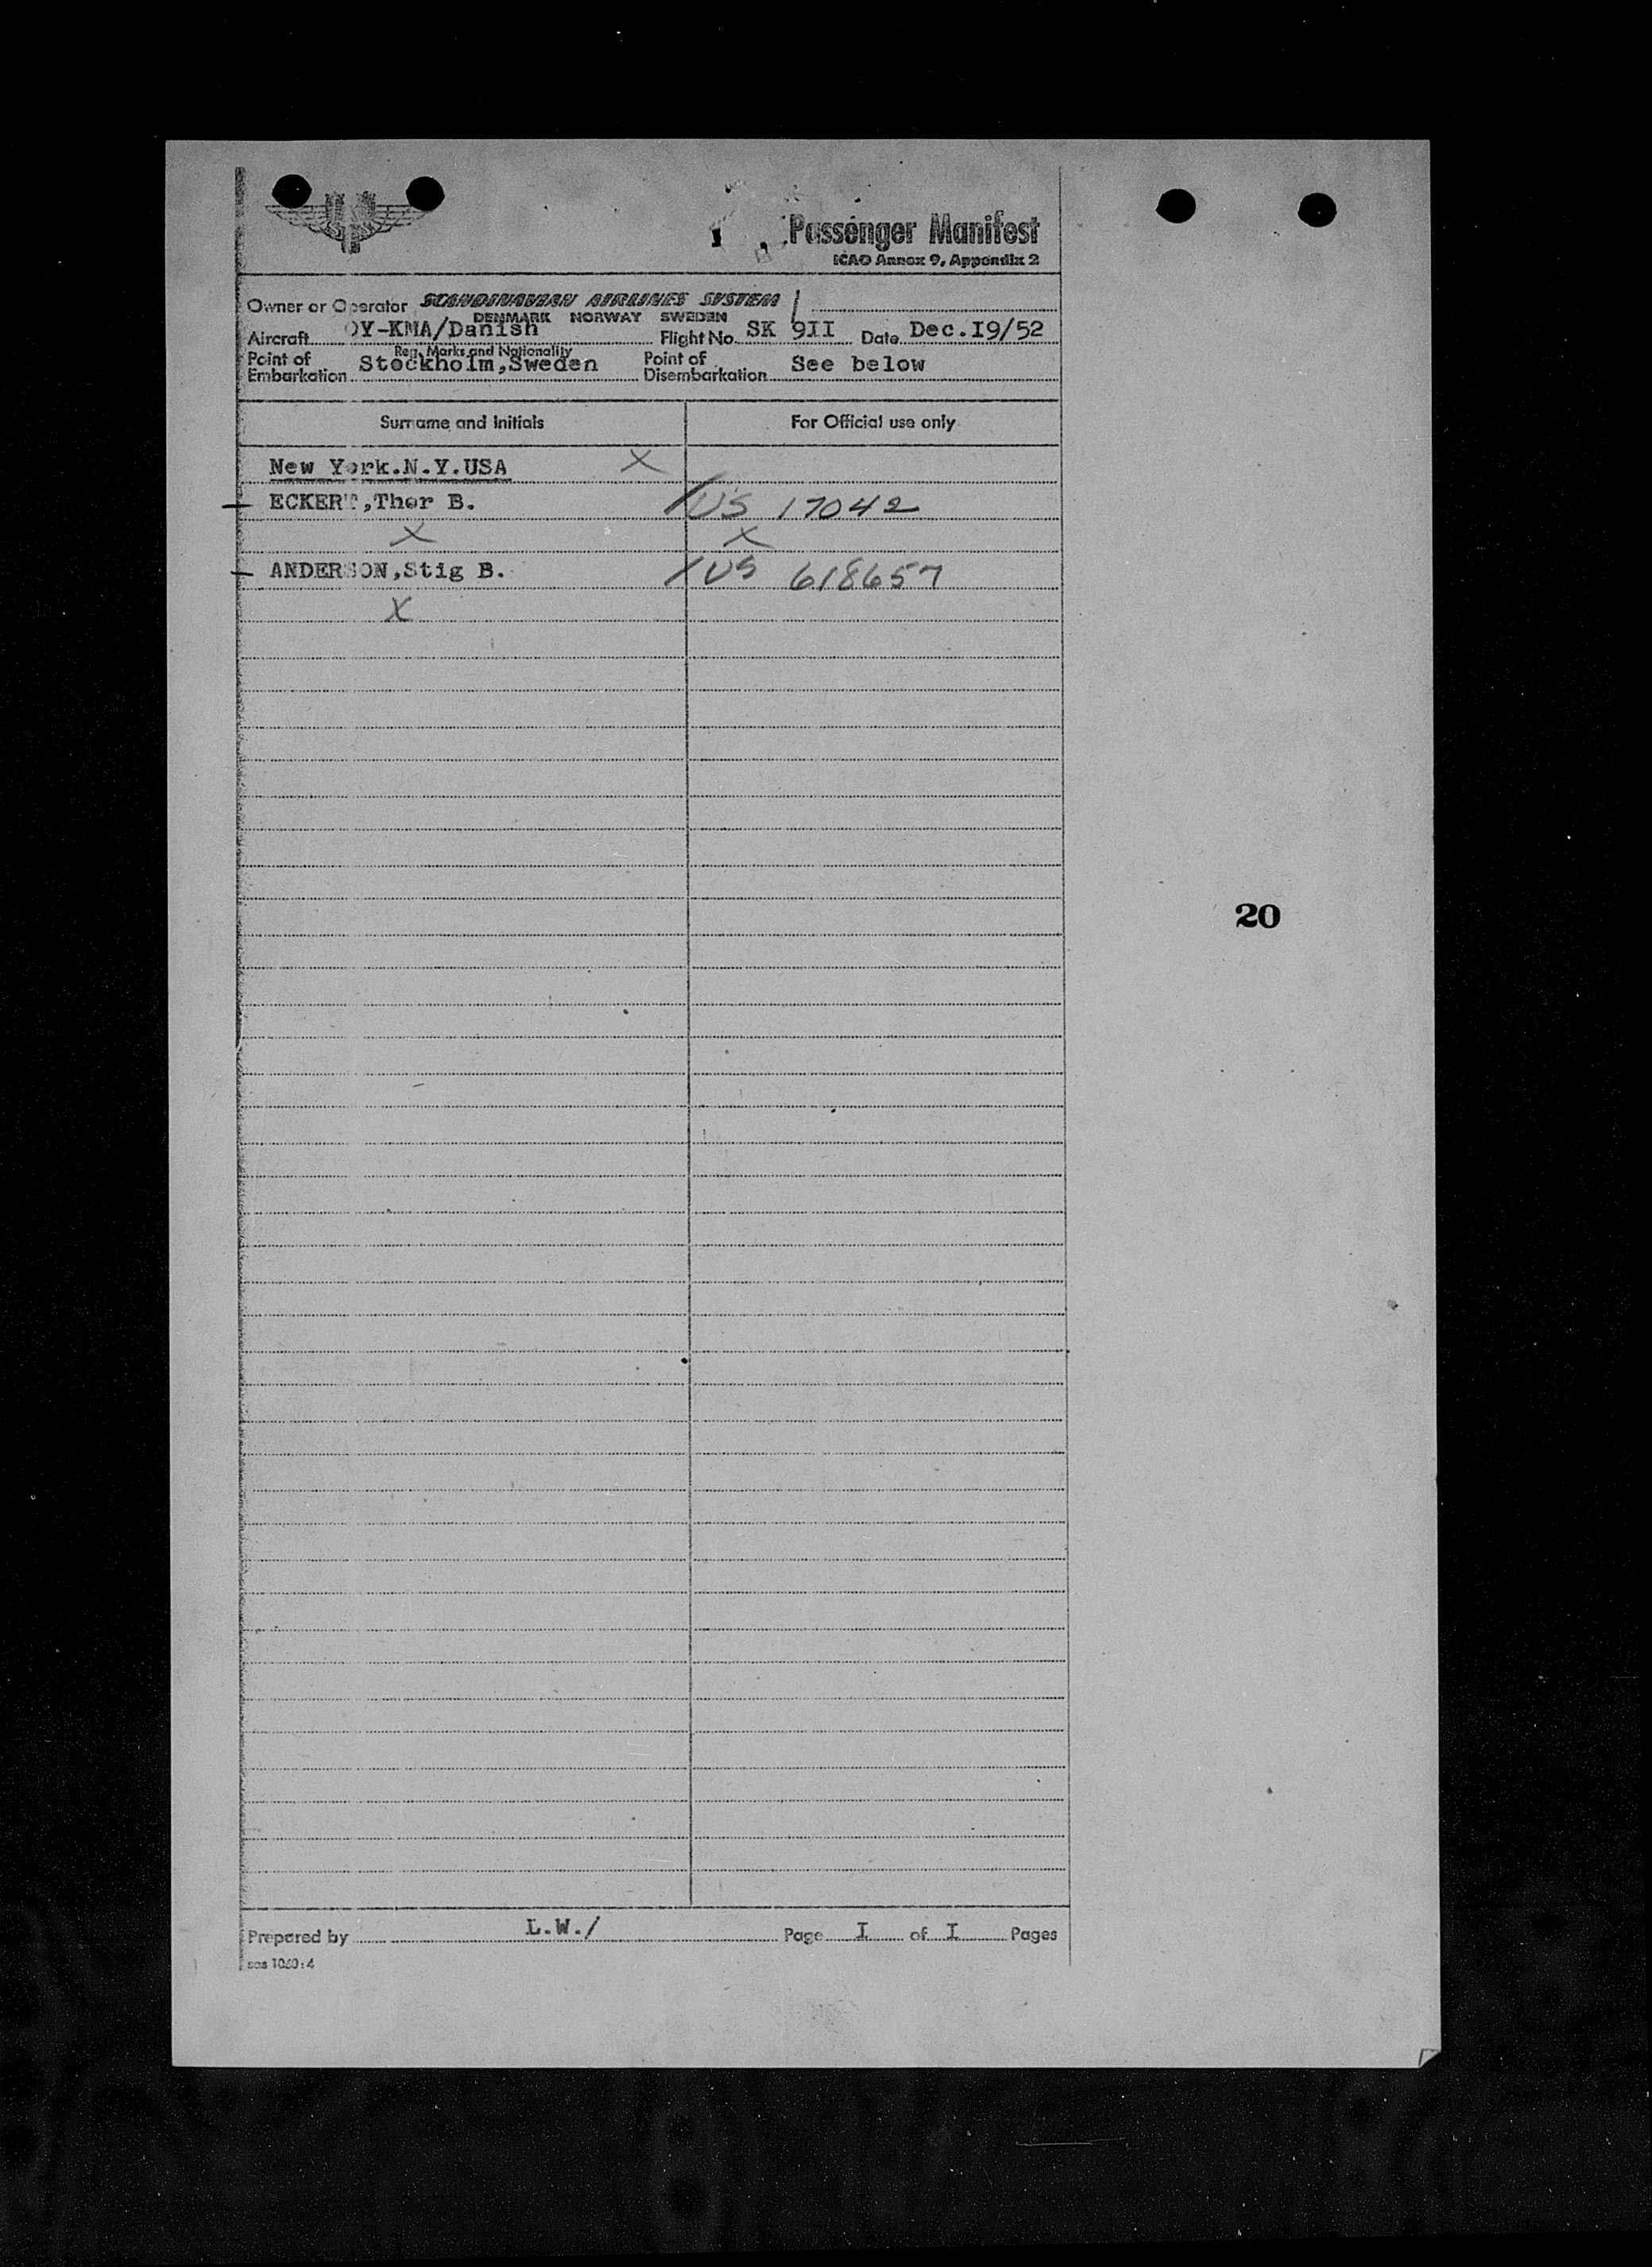 Passenger Manifest
ICAO Annex 9, Appendix 2
Owner or Operator SCANDINAVIAN AIRLINES SYSTEM
DENMARK NORWAY SWEDEN
Aircraft OY-KMA/Danish Flight No. SK 9II Date Dec.I9/52
Reg. Marks and Nationality
Point of Embarkation Stockholm,Sweden Point of Disembarkation See below
Surname and Initials For Official use only
New York.N.Y.USA X
ECKERT,Thor B. US 17042
X X
ANDERSON,Stig B. US 618657
X
20
Prepared by L.W./ Page I of I Pages
sas 1060:4